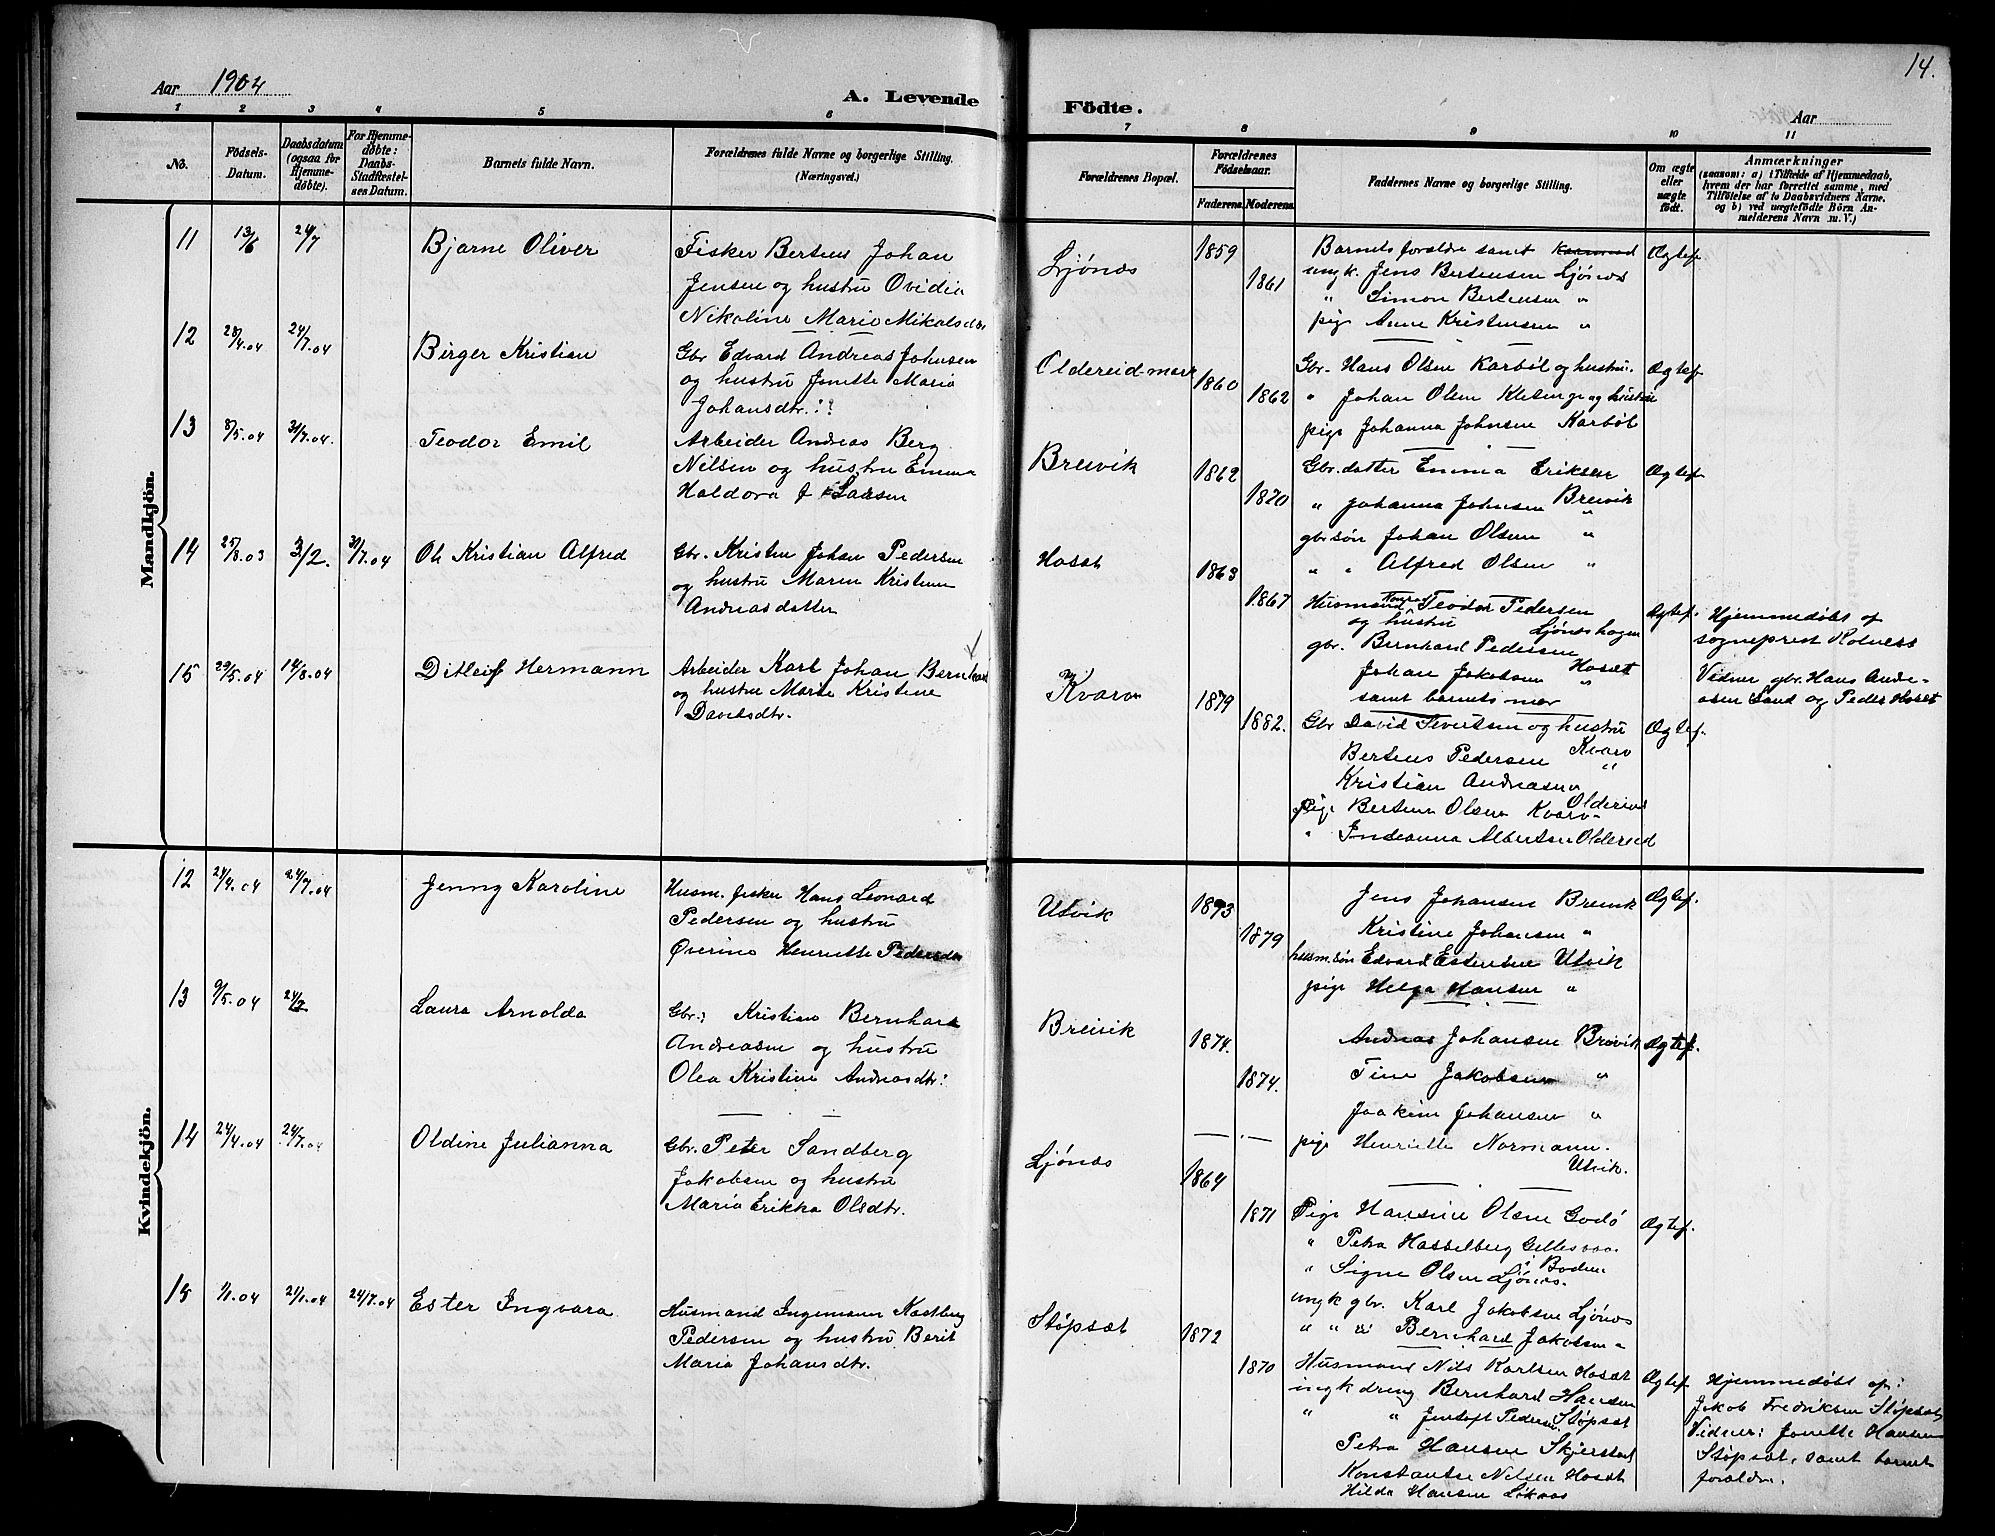 Aar 1904
A. Levende
Födte.
14.
Aar
1 2 3 4 5 6 7 8 9 10 11
No.
Födsels-Datum.
Daabsdatum (ogsaa for Hjemmedöbte).
For Hjemmedöbte: Daabs-Stadfæstelses Datum.
Barnets fulde Navn.
Forældrenes fulde Navne og borgerlige Stilling.
(Næringsvei.)
Forældrenes Bopæl.
Forældrenes Födselsaar.
Faderens. Moderens.
Faddernes Navne og borgerlige Stilling.
Om ægte eller uægte födt.
Anmærkninger
(saasom: a) i Tilfælde af Hjemmedaab,
hvem der har forrettet samme, med
Tilföielse af to Daabsvidners Navne.
og b) ved uægtefödte Börn An-
melderens Navn m. V.)
Mandkjön.
11 13/6 24/7 Bjarne Oliver
Fisker Berteus Johan
Jensen og hustru Ovidia
Nikoline Marie Mikalsdtr
Ljönes 1859 1861
Barnets forældre samt
ungk. Jens Bertensen Ljönes
" Simon Bertensen "
pige Anne Kristensen "
Ægtef.
12 28/4.04 24/7.04 Birger Kristian
Gbr Edvard Andreas Johnsen
og hustru Jonette Maria
Johansdtr.
Oldereid-mark 1860 1862
Gbr. Hans Olsen Karböl og hustru.
" Johan Olsen Kletunge og hustru
pige Johanna Johnsen Karböl
Ægtef.
13 8/5.04 31/7.04. Teodor Emil
Arbeider Andreas Berg
Nilsen og hustru Emma
Haldora J Larsen
Breivik 1862 1870
Gbr. datter Emma Eriksen
" Johanna Johnsen Breivik
gbr sön Johan Olsen "
" " Alfred Olsen "
Ægtef.
14 25/8.03 3/2. 31/7.04 Ole Kristian Alfred
Gbr. Kristen Johan Pedersen
og hustru Maren Kristine
Andreasdatter
Hosæt 1863 1867
Husmand Konrad Teodor Pedersen
og hustru Ljöneshagen
gbr. Bernhard Pedersen
Johan Jakobsen Hosæt
samt barnets mor
Ægtef.
Hjemmedöbt af
sogneprest Rotness
Vidner gbr. Hans Andersen Sand og Peder Hosæt
15 29/5.04 14/8.04 Ditleif Hermann
Arbeider Karl Johan Bernhard
og hustru Marie Kristine
Davidsdtr.
Kvarv 1879 1882.
Gbr David Sivertsen og hustru
Kvarv
Berteus Pedersen "
Kristian Andreasen
Oldereid
pige Bertine Olsen Kvarv
" Indianna Albertsen Oldereid
Ægtef.
Kvindekjön.
12 24/4.04 24/7.04 Jenny Karoline
Husm. fisker Hans Leonard
Pedersen og hustru
Överine Henriette Pedersdtr
Utvik 1873 1879
Jens Johansen Breivik
Kristine Johansen "
husm.sön Edvard Estensen Utvik
pige Helga Hansen "
Ægtef.
13 9/5.04 24/7 Laura Arnolda
Gbr: Kristian Bernhard
Andreasen og hustru
Olea Kristine Andreasdtr:
Breivik 1874. 1874.
Andreas Johansen Breivik
Tine Jakobsen "
Joakim Johansen "
pige Henriette Normann.
Utvik.
Ægtef.
14 24/4.04 24/7.04 Oldine Julianna
Gbr. Peter Sandberg
Jakobsen og hustru
Maria Erikka Olsdtr.
Ljönes 1864 1871
Pige Hansine Olsen Godö
" Petra Hasselberg Gillesvaa
i Bodin.
" Signe Olsen Ljönes.
ungk gbr. Karl Jakobsen Ljönes
" " " Bernhard Jakobsen "
Ægtef.
15 1/1.04 21/1.04 24/7.04 Ester Ingvara
Husmand Ingemann
Pedersen og hustru Berit
Maria Johansdtr.
Stöpsæt 1872 1870
Husmand Nils Karlsen Hosæt
ungk dreng Bernhard Hansen
" " Jentoft Pedersen Stöpsæt
Petra Hansen Skjerstad
Konstantse Nilsen Hosæt
Hilda Hansen Löknes
Ægtef.
Hjemmedöbt af:
Jakob Fredriksen Stöpsæt
Vidner: Jonette Hansen
Stöpsæt, samt barnets
forældre.